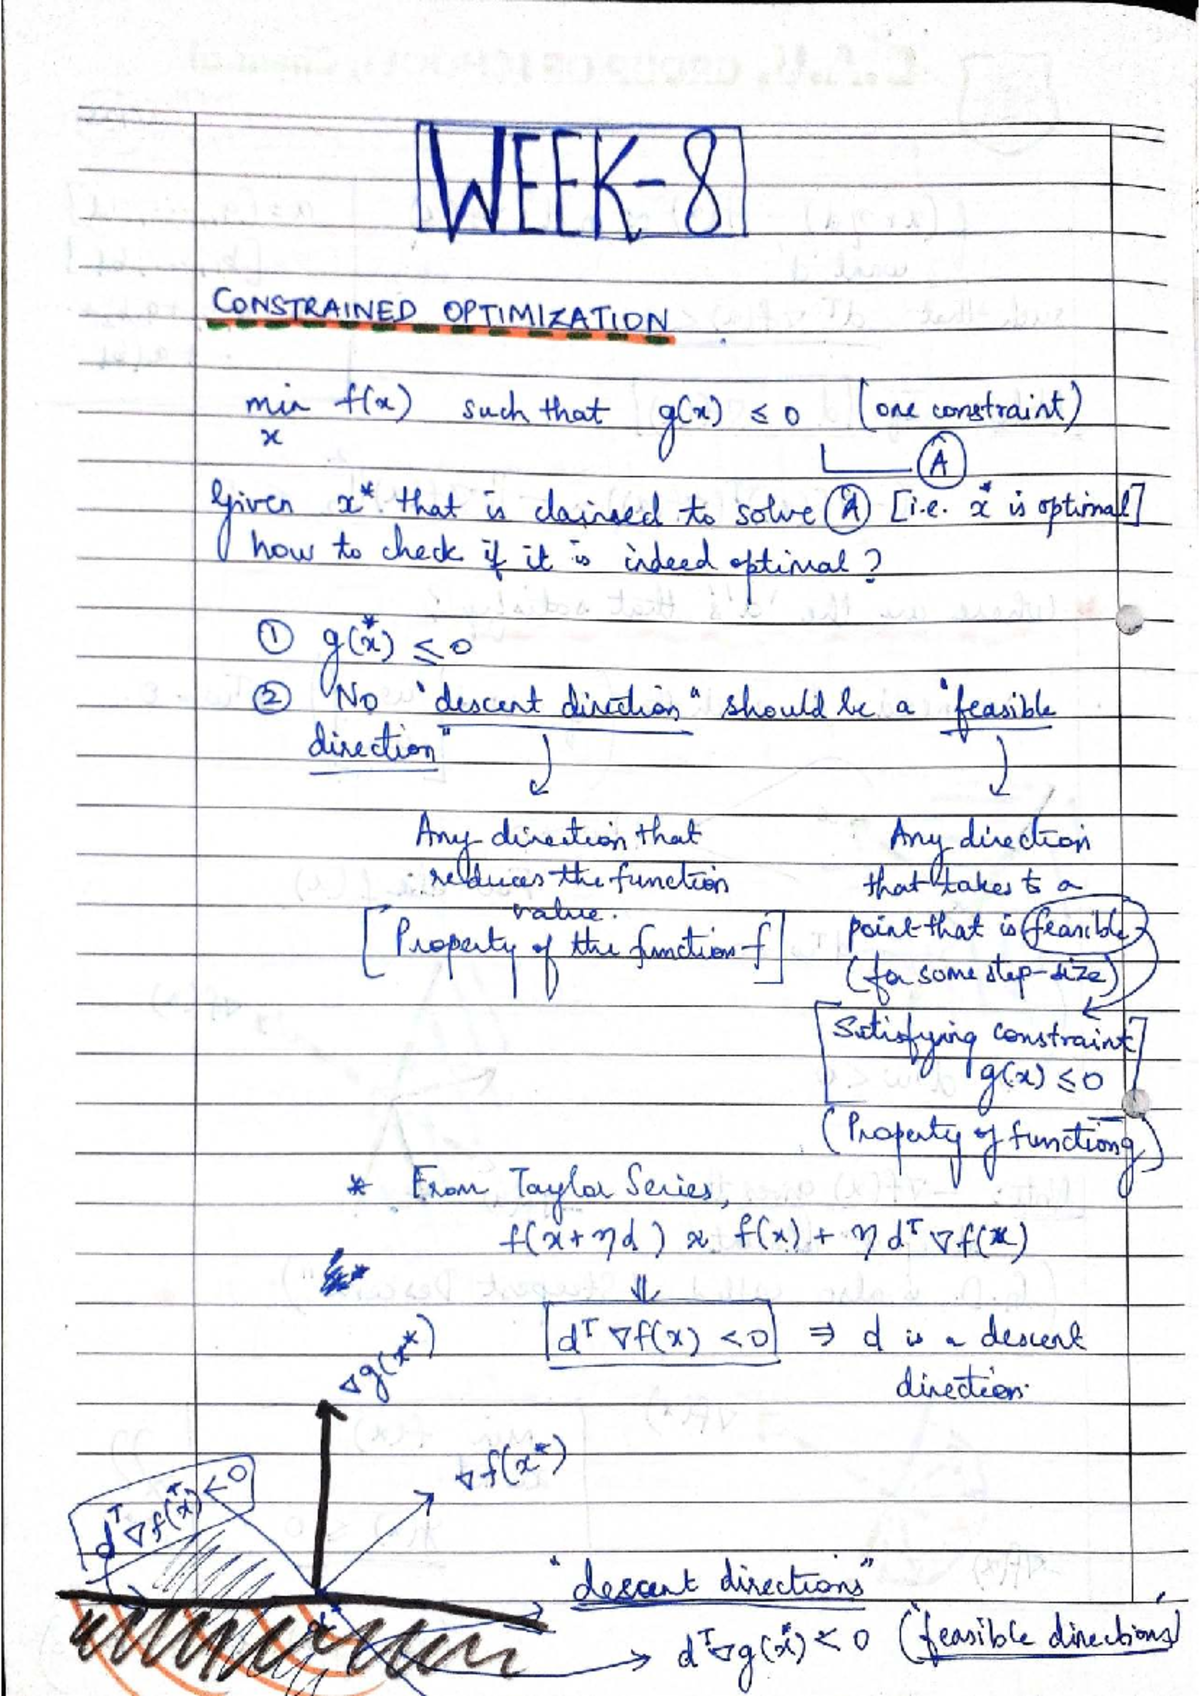 WEEK-8
CONSTRAINED OPTIMIZATION
min f(x) such that g(x) ≤ 0 [one constraint)
x
Ⓐ
Given x* that is claimed to solve Ⓐ [i.e. x* is optimal]
how to check if it is indeed optimal?
① g(x*) ≤ 0
② No "descent direction" should be a "feasible
direction"
Any direction that
reduces the function
value.
[Property of the function f]
Any direction
that takes to a
point that is feasible
(for some step-size)
[Satisfying constraint
g(x) ≤ 0]
(Property of function g)
* From Taylor Series,
f(x+ηd) ≈ f(x) + η dᵀ ∇f(x)
⇓
dᵀ ∇f(x) < 0 ⇒ d is a descent
direction.
∇g(x*)
∇f(x*)
dᵀ∇f(x*) < 0
x*
"descent directions"
dᵀ∇g(x*) < 0 (feasible directions)